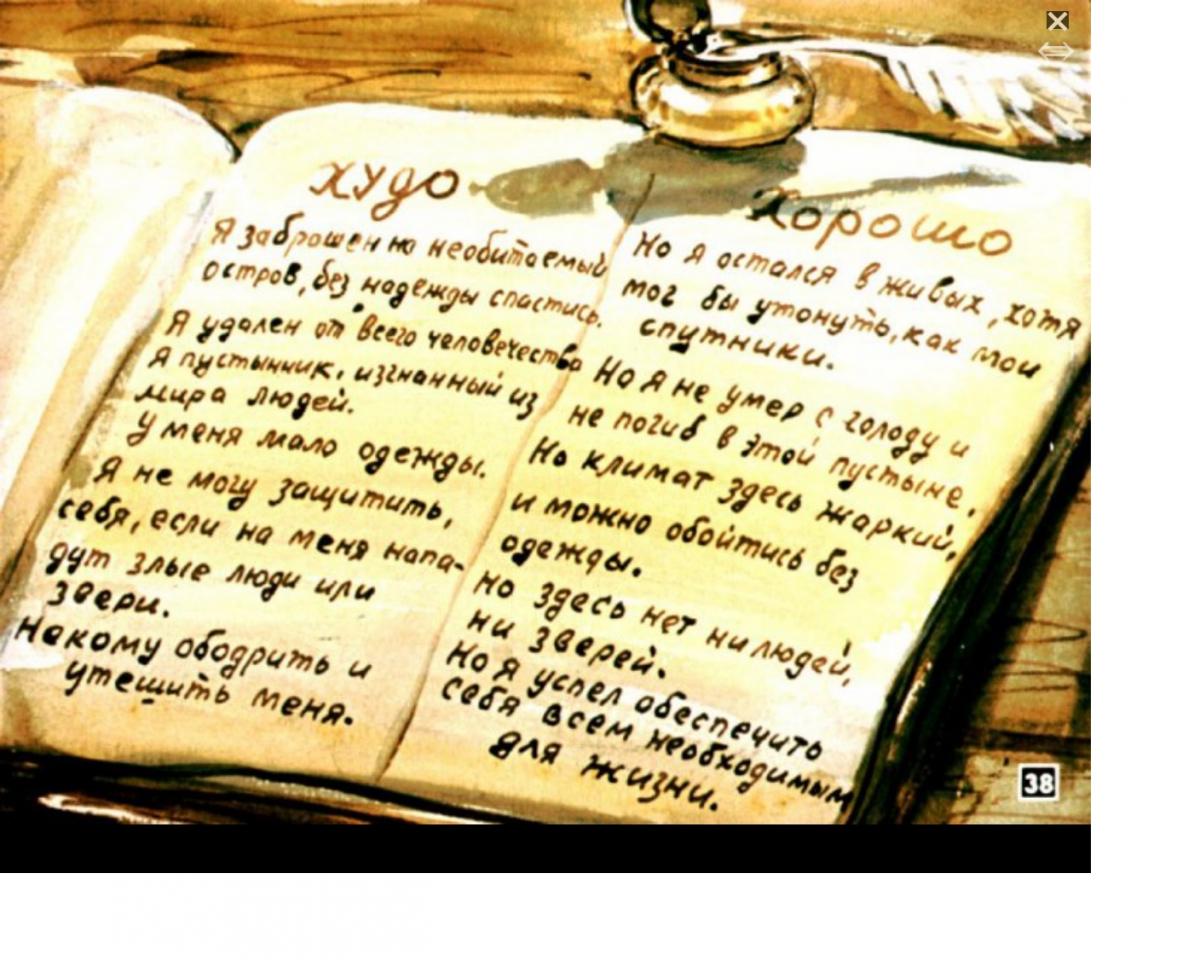 худо
Я заброшен на необитаемый
остров, без надежды спастись.
Я удален от всего человечества
Я пустынник, изгнанный из
мира людей.
У меня мало одежды.
Я не могу защитить,
себя, если на меня напа-
дут злые люди или
звери.
Некому ободрить и
утешить меня.
Хорошо
Но я остался в живых, хотя
мог бы утонуть, как мои
спутники.
Но Я не умер с голоду и
не погиб в этой пустыне.
Но климат здесь жаркий,
и можно обойтись без
одежды.
Но здесь нет ни людей,
ни зверей.
Но я успел обеспечить
себя всем необходимым
для жизни.
38